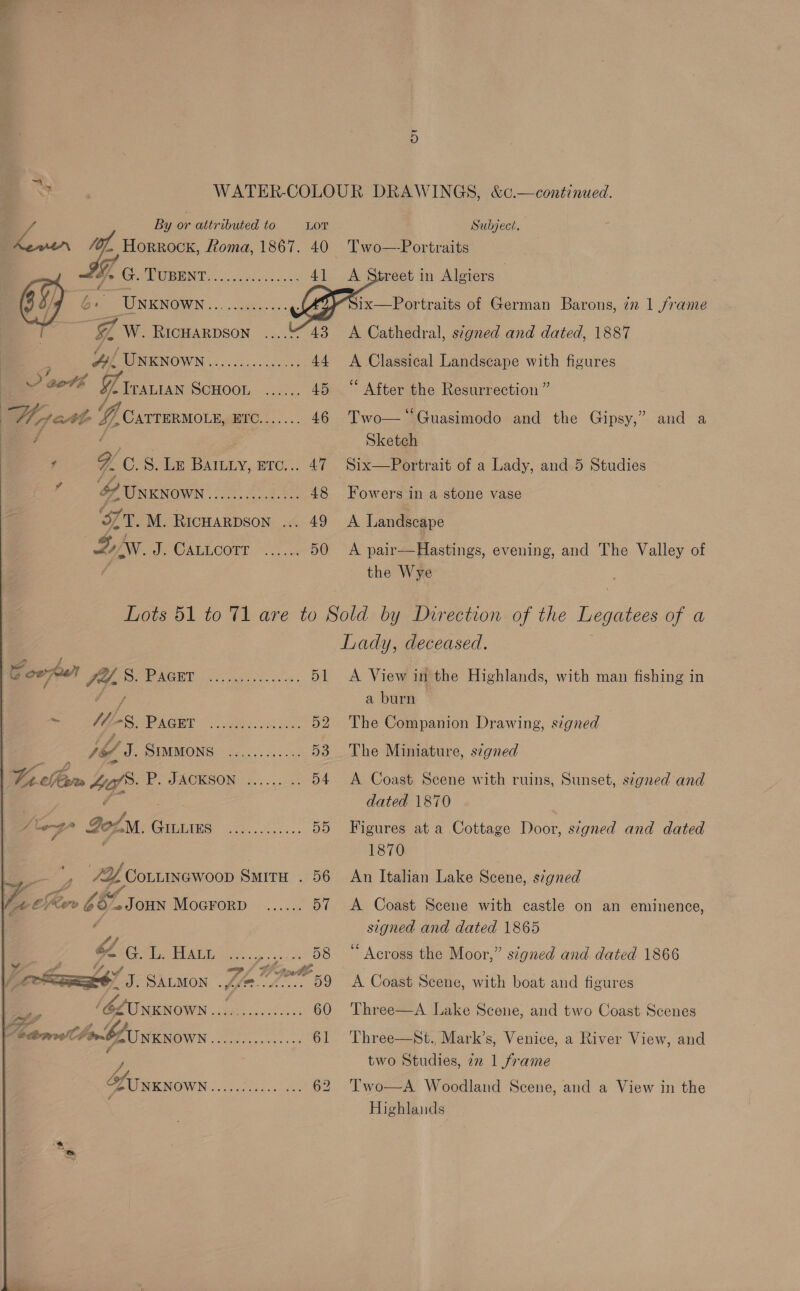 5
WATER-COLOUR DRAWINGS, &c.—continued.
By or attributed to LOT Subject.
HORROCK, Roma, 1867. 40 Two—Portraits
G. TUBENT............... 41 A Street in Algiers
UNKNOWN... Six—Portraits of German Barons, in 1 frame
W. RICHARDSON .... 43 A Cathedral, signed and dated, 1887
UNKNOWN............... 44 A Classical Landscape with figures
ITALIAN SCHOOL ...... 45 “After the Resurrection”
CATTERMOLE, ETC....... 46 Two—“Guasimodo and the Gipsy,” and a
Sketch
C. S. LE BAILLY, ETC... 47 Six—Portrait of a Lady, and 5 Studies
UNKNOWN............... 48 Fowers in a stone vase
T. M. RICHARDSON ... 49 A Landscape
W. J. CALLCOTT ...... 50 A pair—Hastings, evening, and The Valley of
the Wye
Lots 51 to 71 are to Sold by Direction of the Legatees of a
Lady, deceased.
S. PAGET ............... 51 A View in the Highlands, with man fishing in
a burn
S. PAGET ............... 52 The Companion Drawing, signed
J. SIMMONS ............ 53 The Miniature, signed
S. P. JACKSON ...... .. 54 A Coast Scene with ruins, Sunset, signed and
dated 1870
M. GILLIES ............ 55 Figures at a Cottage Door, signed and dated
1870
COLLINGWOOD SMITH . 56 An Italian Lake Scene, signed
JOHN MOGFORD ...... 57 A Coast Scene with castle on an eminence,
signed and dated 1865
G. L. HALL ............ 58 “Across the Moor,” signed and dated 1866
J. SALMON ............ 59 A Coast Scene, with boat and figures
UNKNOWN............... 60 Three—A Lake Scene, and two Coast Scenes
UNKNOWN............... 61 Three—St. Mark’s, Venice, a River View, and
two Studies, in 1 frame
UNKNOWN............ ... 62 Two—A Woodland Scene, and a View in the
Highlands